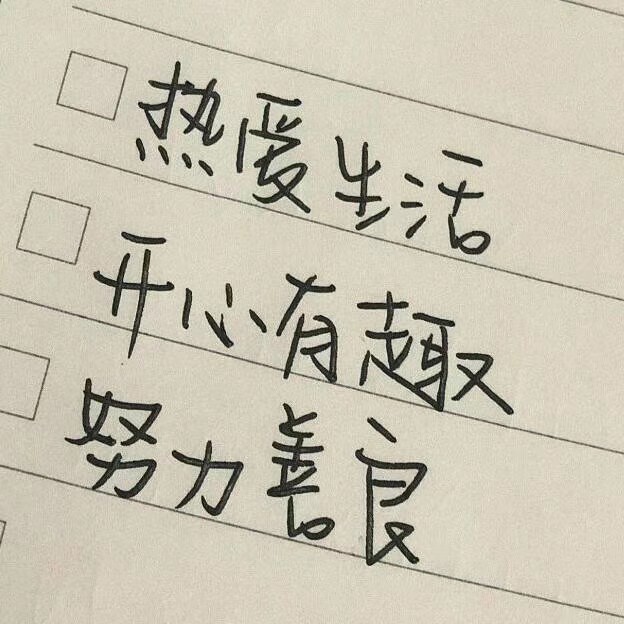 热爱生活
开心有趣
努力善良